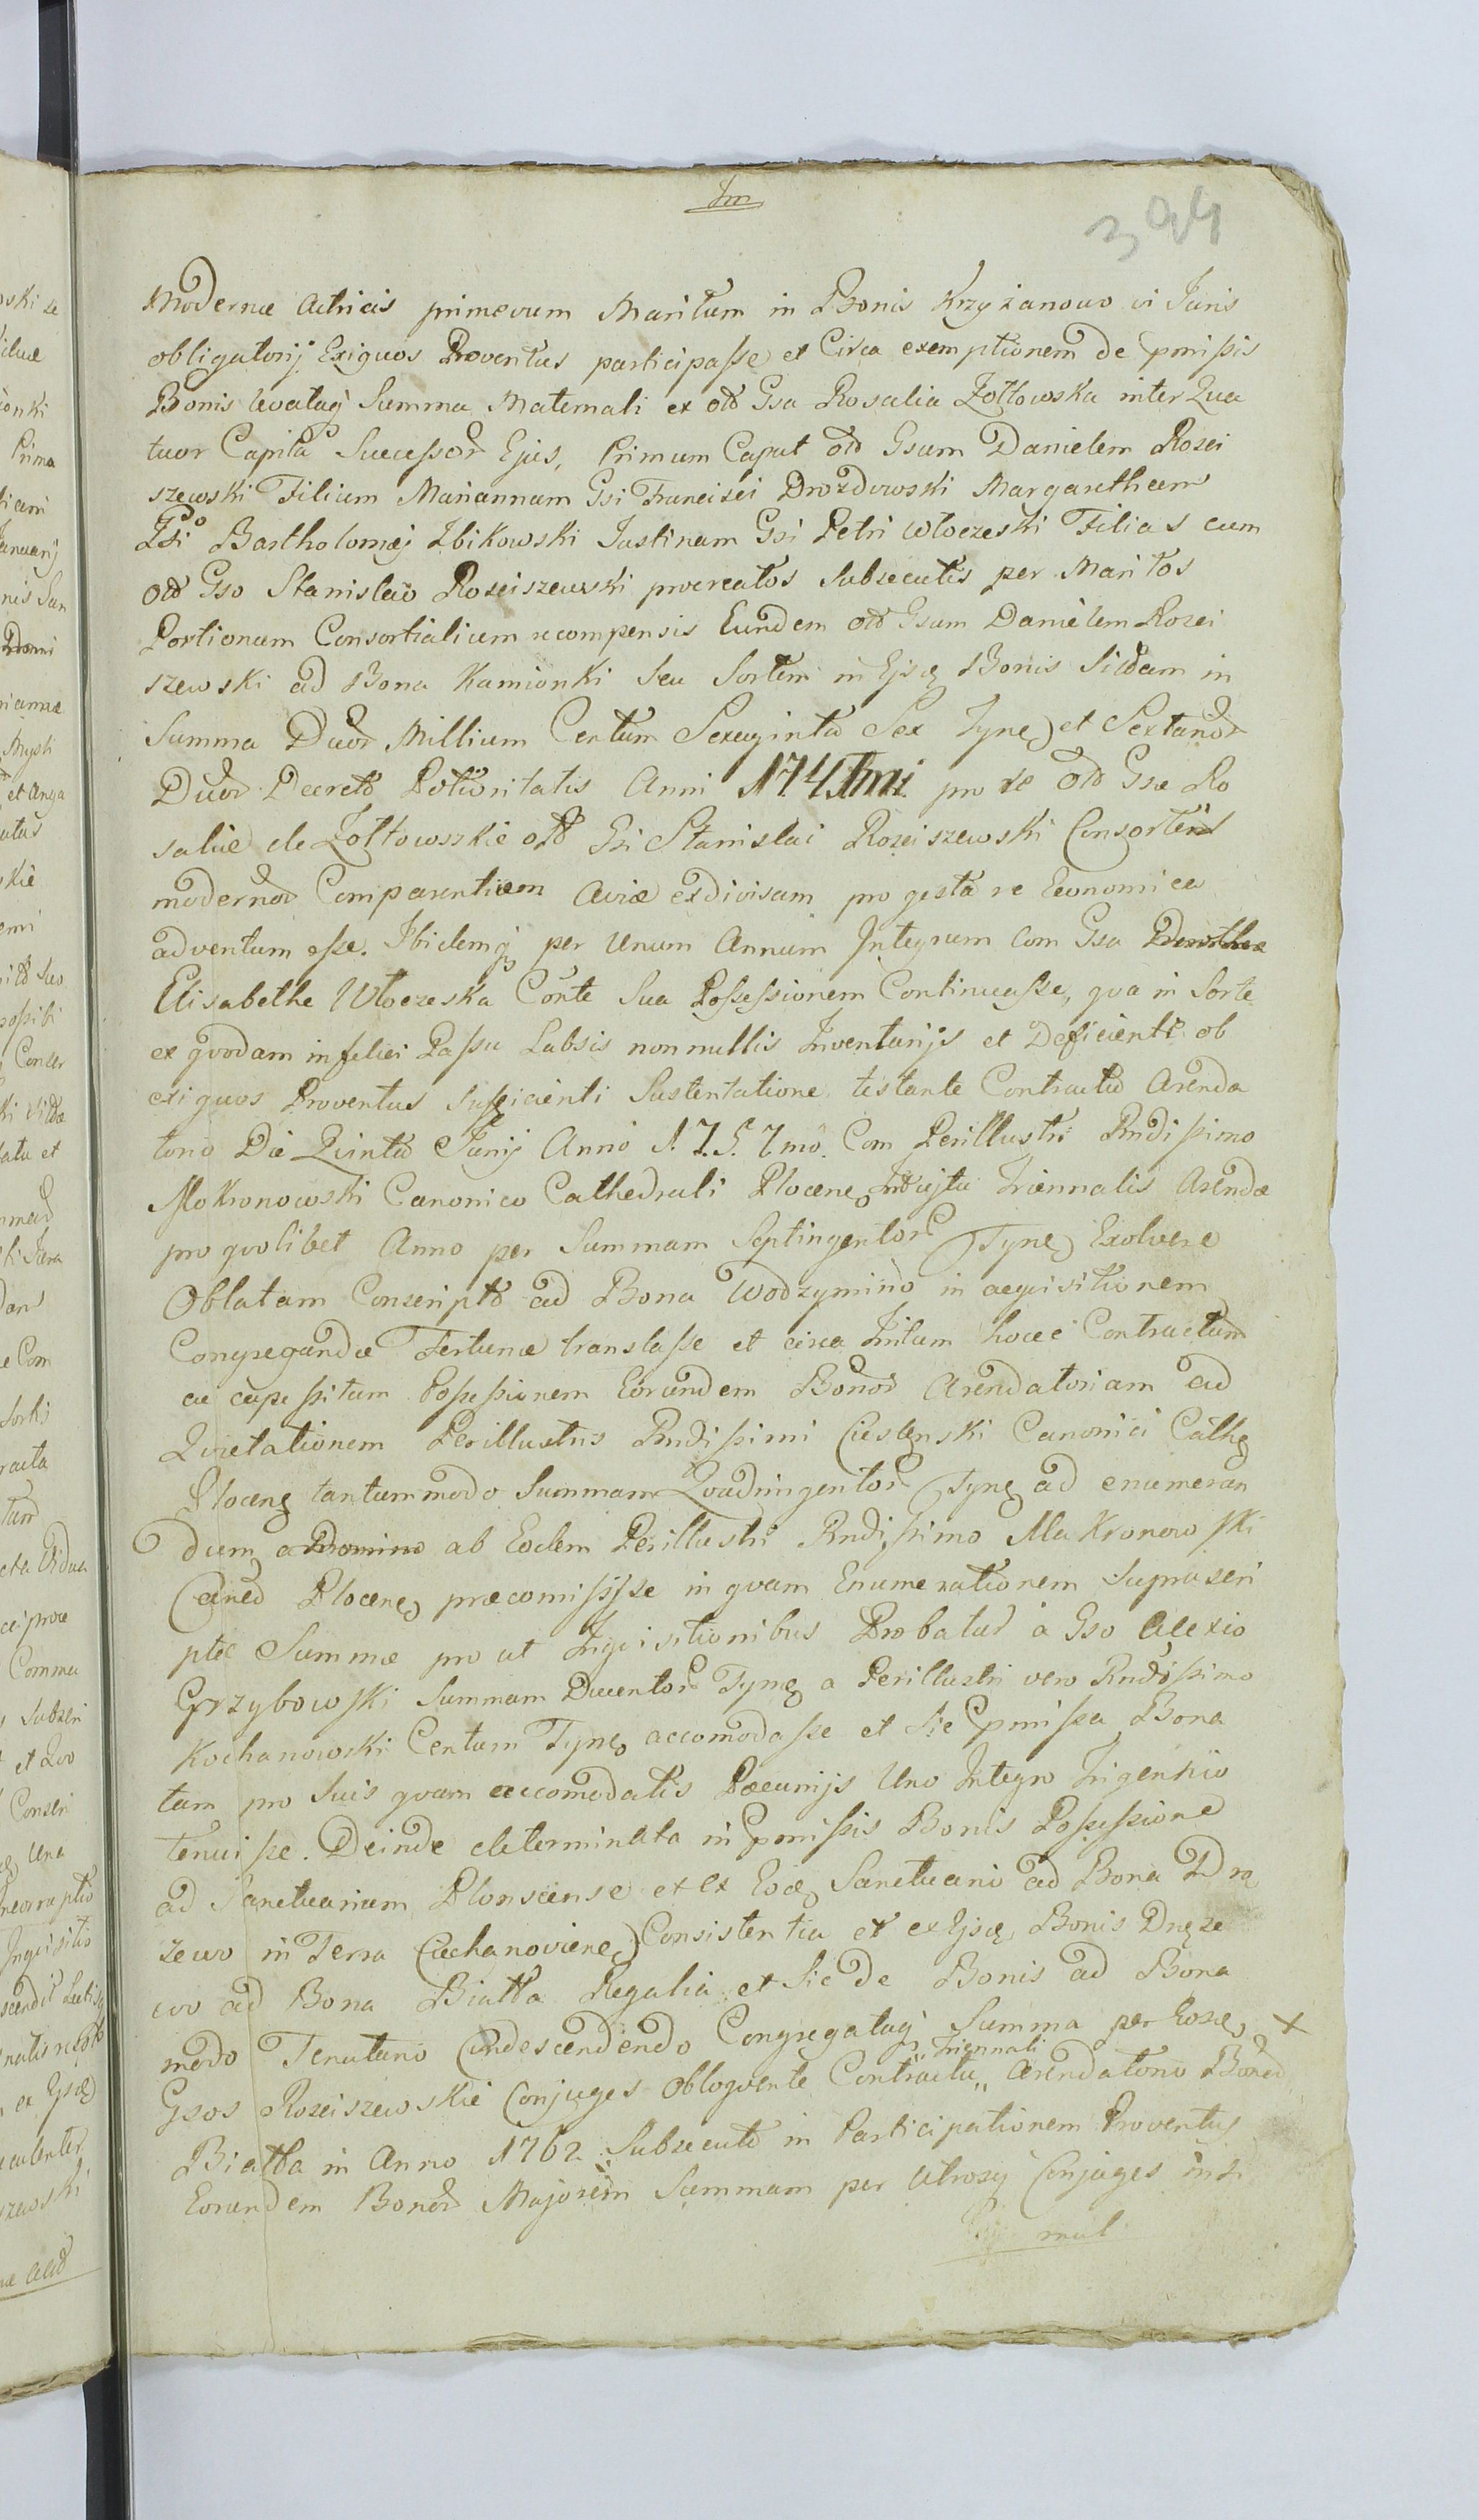 Im
394
Modernæ Actricis primevum Maritum in Bonis Krzyżanowo vi Juris
obligatorij Exiguos Proventus participasse et Circa exemptionem de pmissis
Bonis levataq Summa Maternali ex olð Gsa Rosalia Zołtowska inter Qua
tuor Capita Successor Ejus, Primum Caput olð Gsum Danielem Rosci
szewski Filium Mariannam Gsi Francisci Drozdowski Margaretham
Gsi Bartholomæj Zbikowski Justinam Gsi Petri Wloczeski Filias cum
olð Gso Stanislao Rosciszewski procreatos subsecutis per Maritos
Portionum Consortialium recompensis Eundem olð Gsum Danielem Rosci
szewski ad Bona Kamionki seu Sortem in Ejsq Bonis Sitam in
Summa Duor Millium Centum Sexaginta Sex Tyne et Sextanor
Duor Decreto Potioritatis Anni 174 pro re olð Gsæ Ro
saliæ de Zołtowskie olð Gsi Stanislai Rosciszewski Consortis
modernor Comparentium Aviæ exdivisam pro gesta re Economica
adventum esse. Ibidemq per Unum Annum Integrum Com Gsa
Elisabethe Wloczeska Conte Sua Possessionem Continuasse, qua in Sorte
ex quodam infelici Passu Labsis nonnullis Inventarijs et Deficienti ob
exiguos Proventus sufficienti Sustentatione testante Contractu Arenda
torio Die Quinta Junij Anno 1757mo. Com Perillustri Rndissimo
Mokronowski Canonico Cathedrali Plocene Triennalis Arendæ
pro quolibet Anno per Summam Septingentor Tyne Exolvere
Oblatam Conscripto ad Bona Wodzymino in aequisitionem
Congregandæ Fortunæ translasse et circa Initum hocce Contractum
ac capessitam Possessionem Eorundem Bonor Arendatoriam ad
Quietationem Perillustris Rndissimi Cieslenski Canonici Cathe
Plocene tantummodo Summam Quadringentor Tyne ad enumeran
dum a Domino ab Eodem Perillustri Rndissimo Makronowski
Cane Plocene præcomisisse in quam Enumerationem Suprascri
ptæ Summæ pro ut Inquisitionibus Probatur a Gso Alexio
Grzybowski Summam Ducentor Tyne a Perillustri vero Rndissimo
Kochanowski Centum Tyne accomodasse et sic pmissa Bona
tam pro suis quam accomodatis Pæcunijs Uno Integro Trigennio
tenuisse. Deinde determinata in pmissis Bonis Possessione
ad Sanctuarium Plonscense et ex Eoq Sanctuario ad Bona Drą
zewo in Terra Ciechanoviene Consistentia et ex Ejsq Bonis Drąze
wo ad Bona Białła Regalia et sic de Bonis ad Bona
modo Tenutario Condescendendo Congregataq Summa per Eosq x
Gsos Rosciszewskie Conjuges obloquente Contractu Triennali Arendatorio Bonor
Białła in Anno 1762 Subsecuto in Participationem Proventus
Eorundem Bonor Majorem Summam per Utrosq Conjuges insi
mul